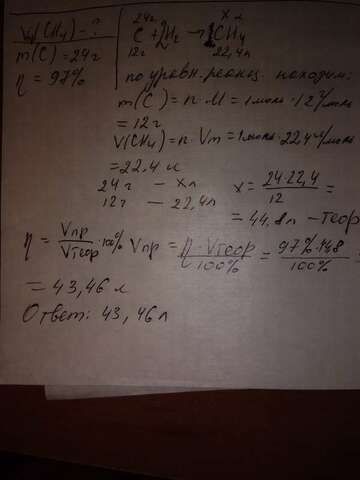 V(CH₄) - ?
m(C) = 24г
η = 97%
24г х л
C + 2H₂ → 1CH₄
12г 22,4л
по уравн. реакц. находим:
m(C) = n · M = 1моль · 12г/моль
= 12г
V(CH₄) = n · Vm = 1моль · 22,4л/моль
= 22,4 л
24 г — х л
12г — 22,4л
x = 24·22,4 / 12 =
= 44,8л - теор
η = Vпр / Vтеор · 100% Vпр = η · Vтеор / 100% = 97% · 44,8 / 100% =
= 43,46 л
Ответ: 43,46л